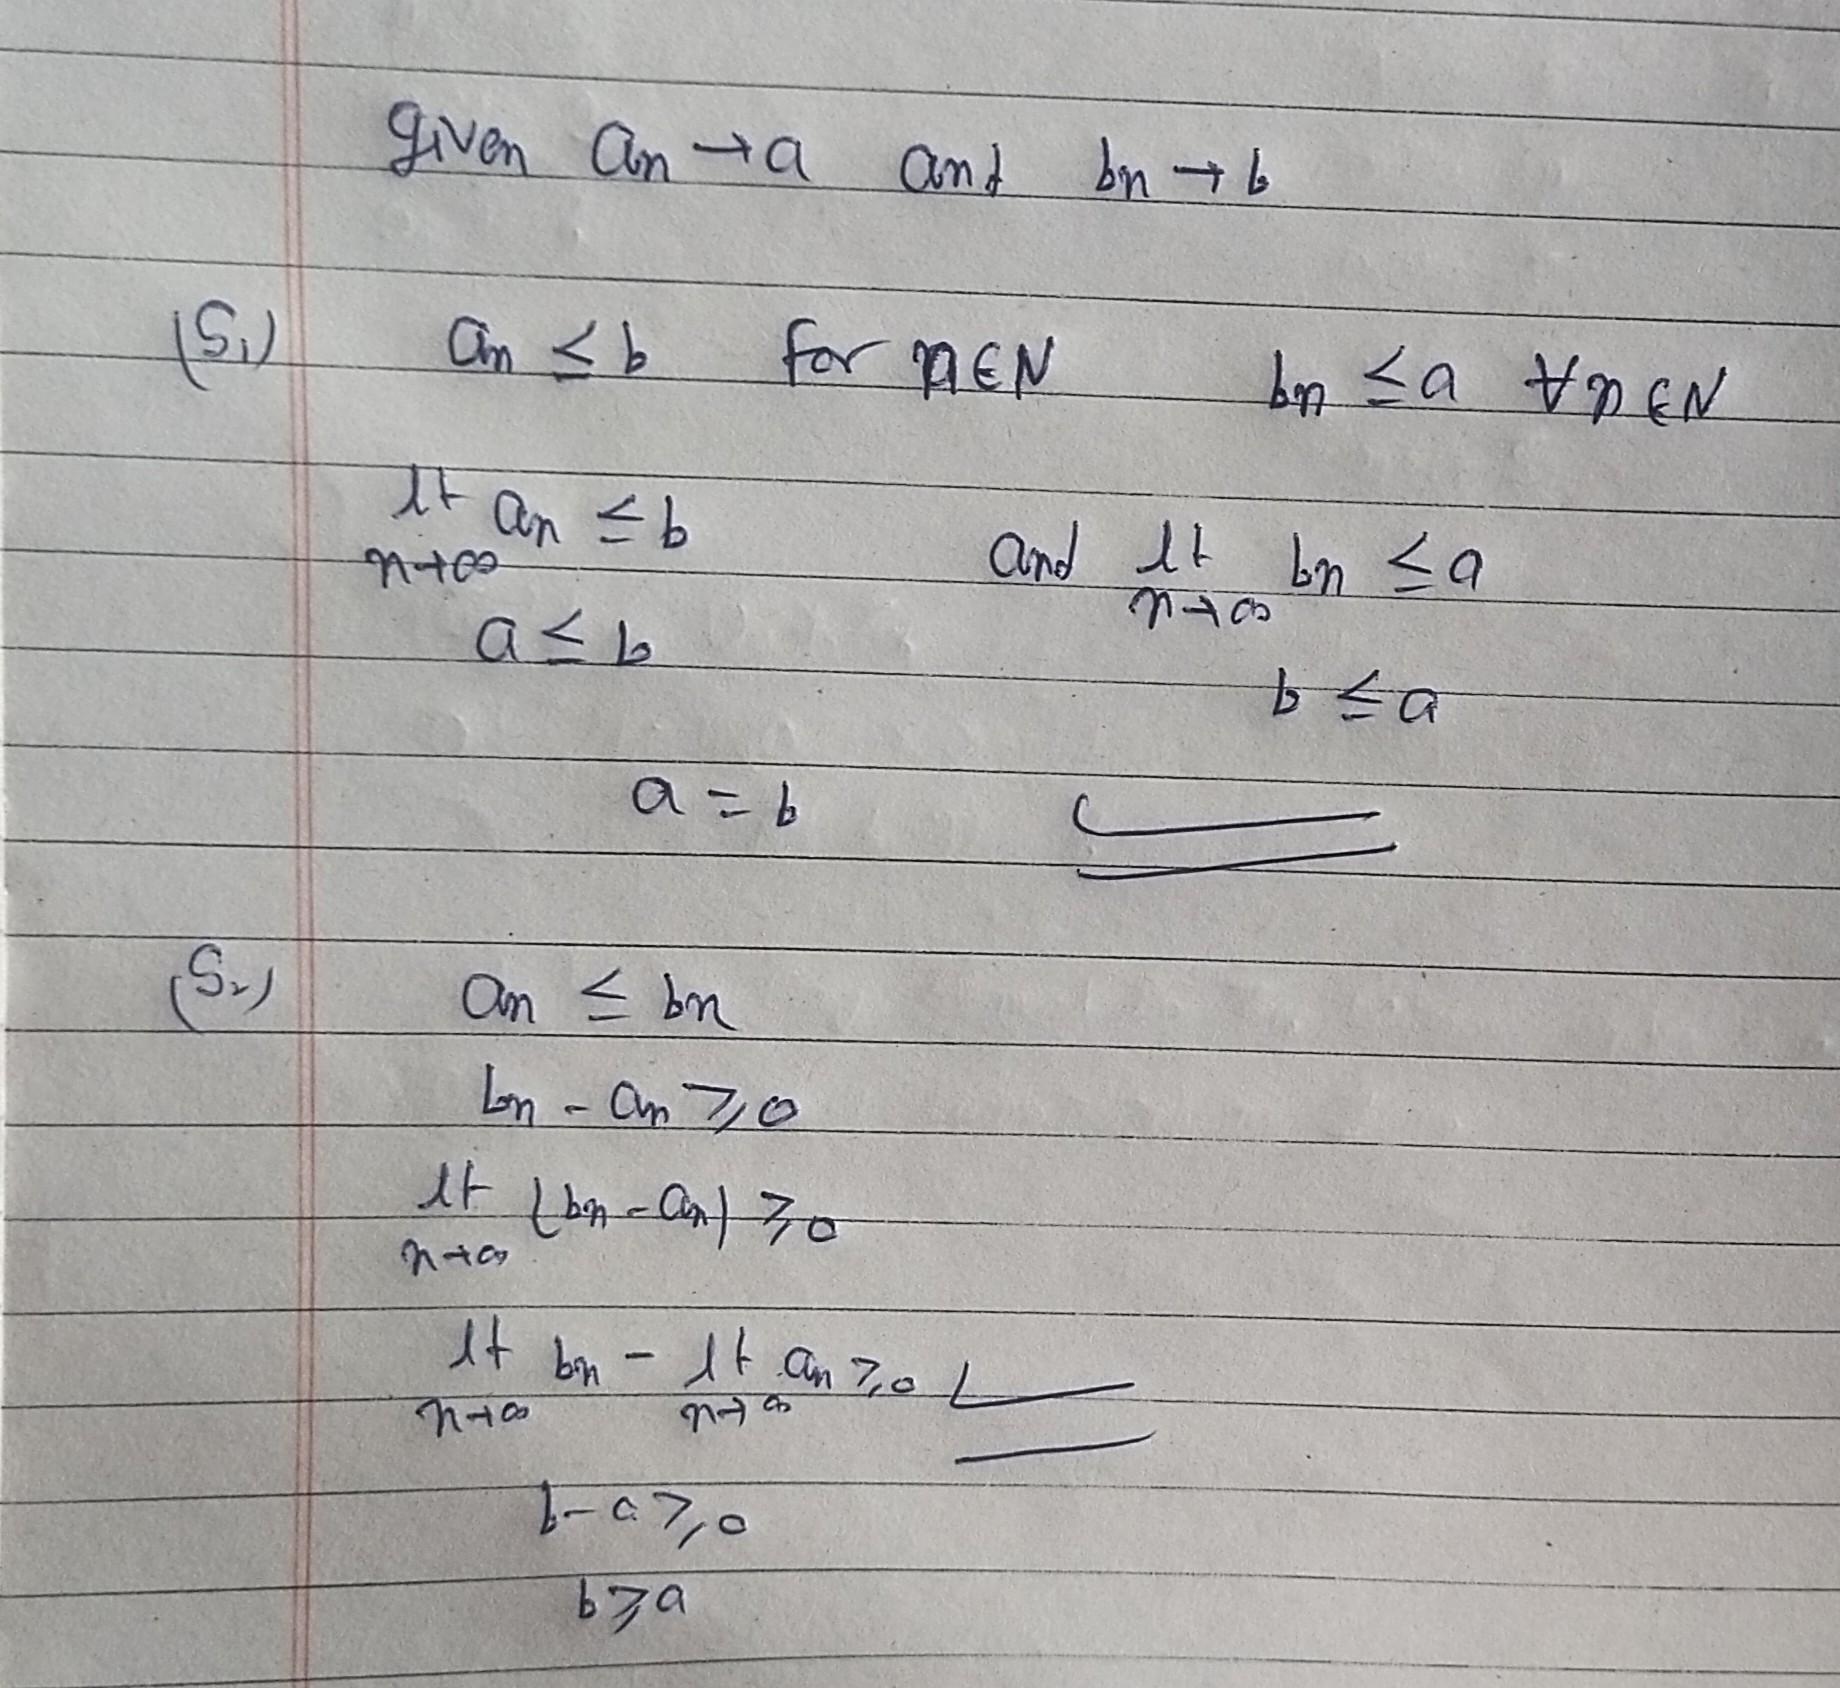 Given an → a and bn → b
(S1) an ≤ b for n∈N bn ≤ a ∀ n∈N
lt an ≤ b and lt bn ≤ a
n→∞ n→∞
a ≤ b b ≤ a
a = b
(S2) an ≤ bn
bn - an ≥ 0
lt (bn - an) ≥ 0
n→∞
lt bn - lt an ≥ 0
n→∞ n→∞
b - a ≥ 0
b ≥ a